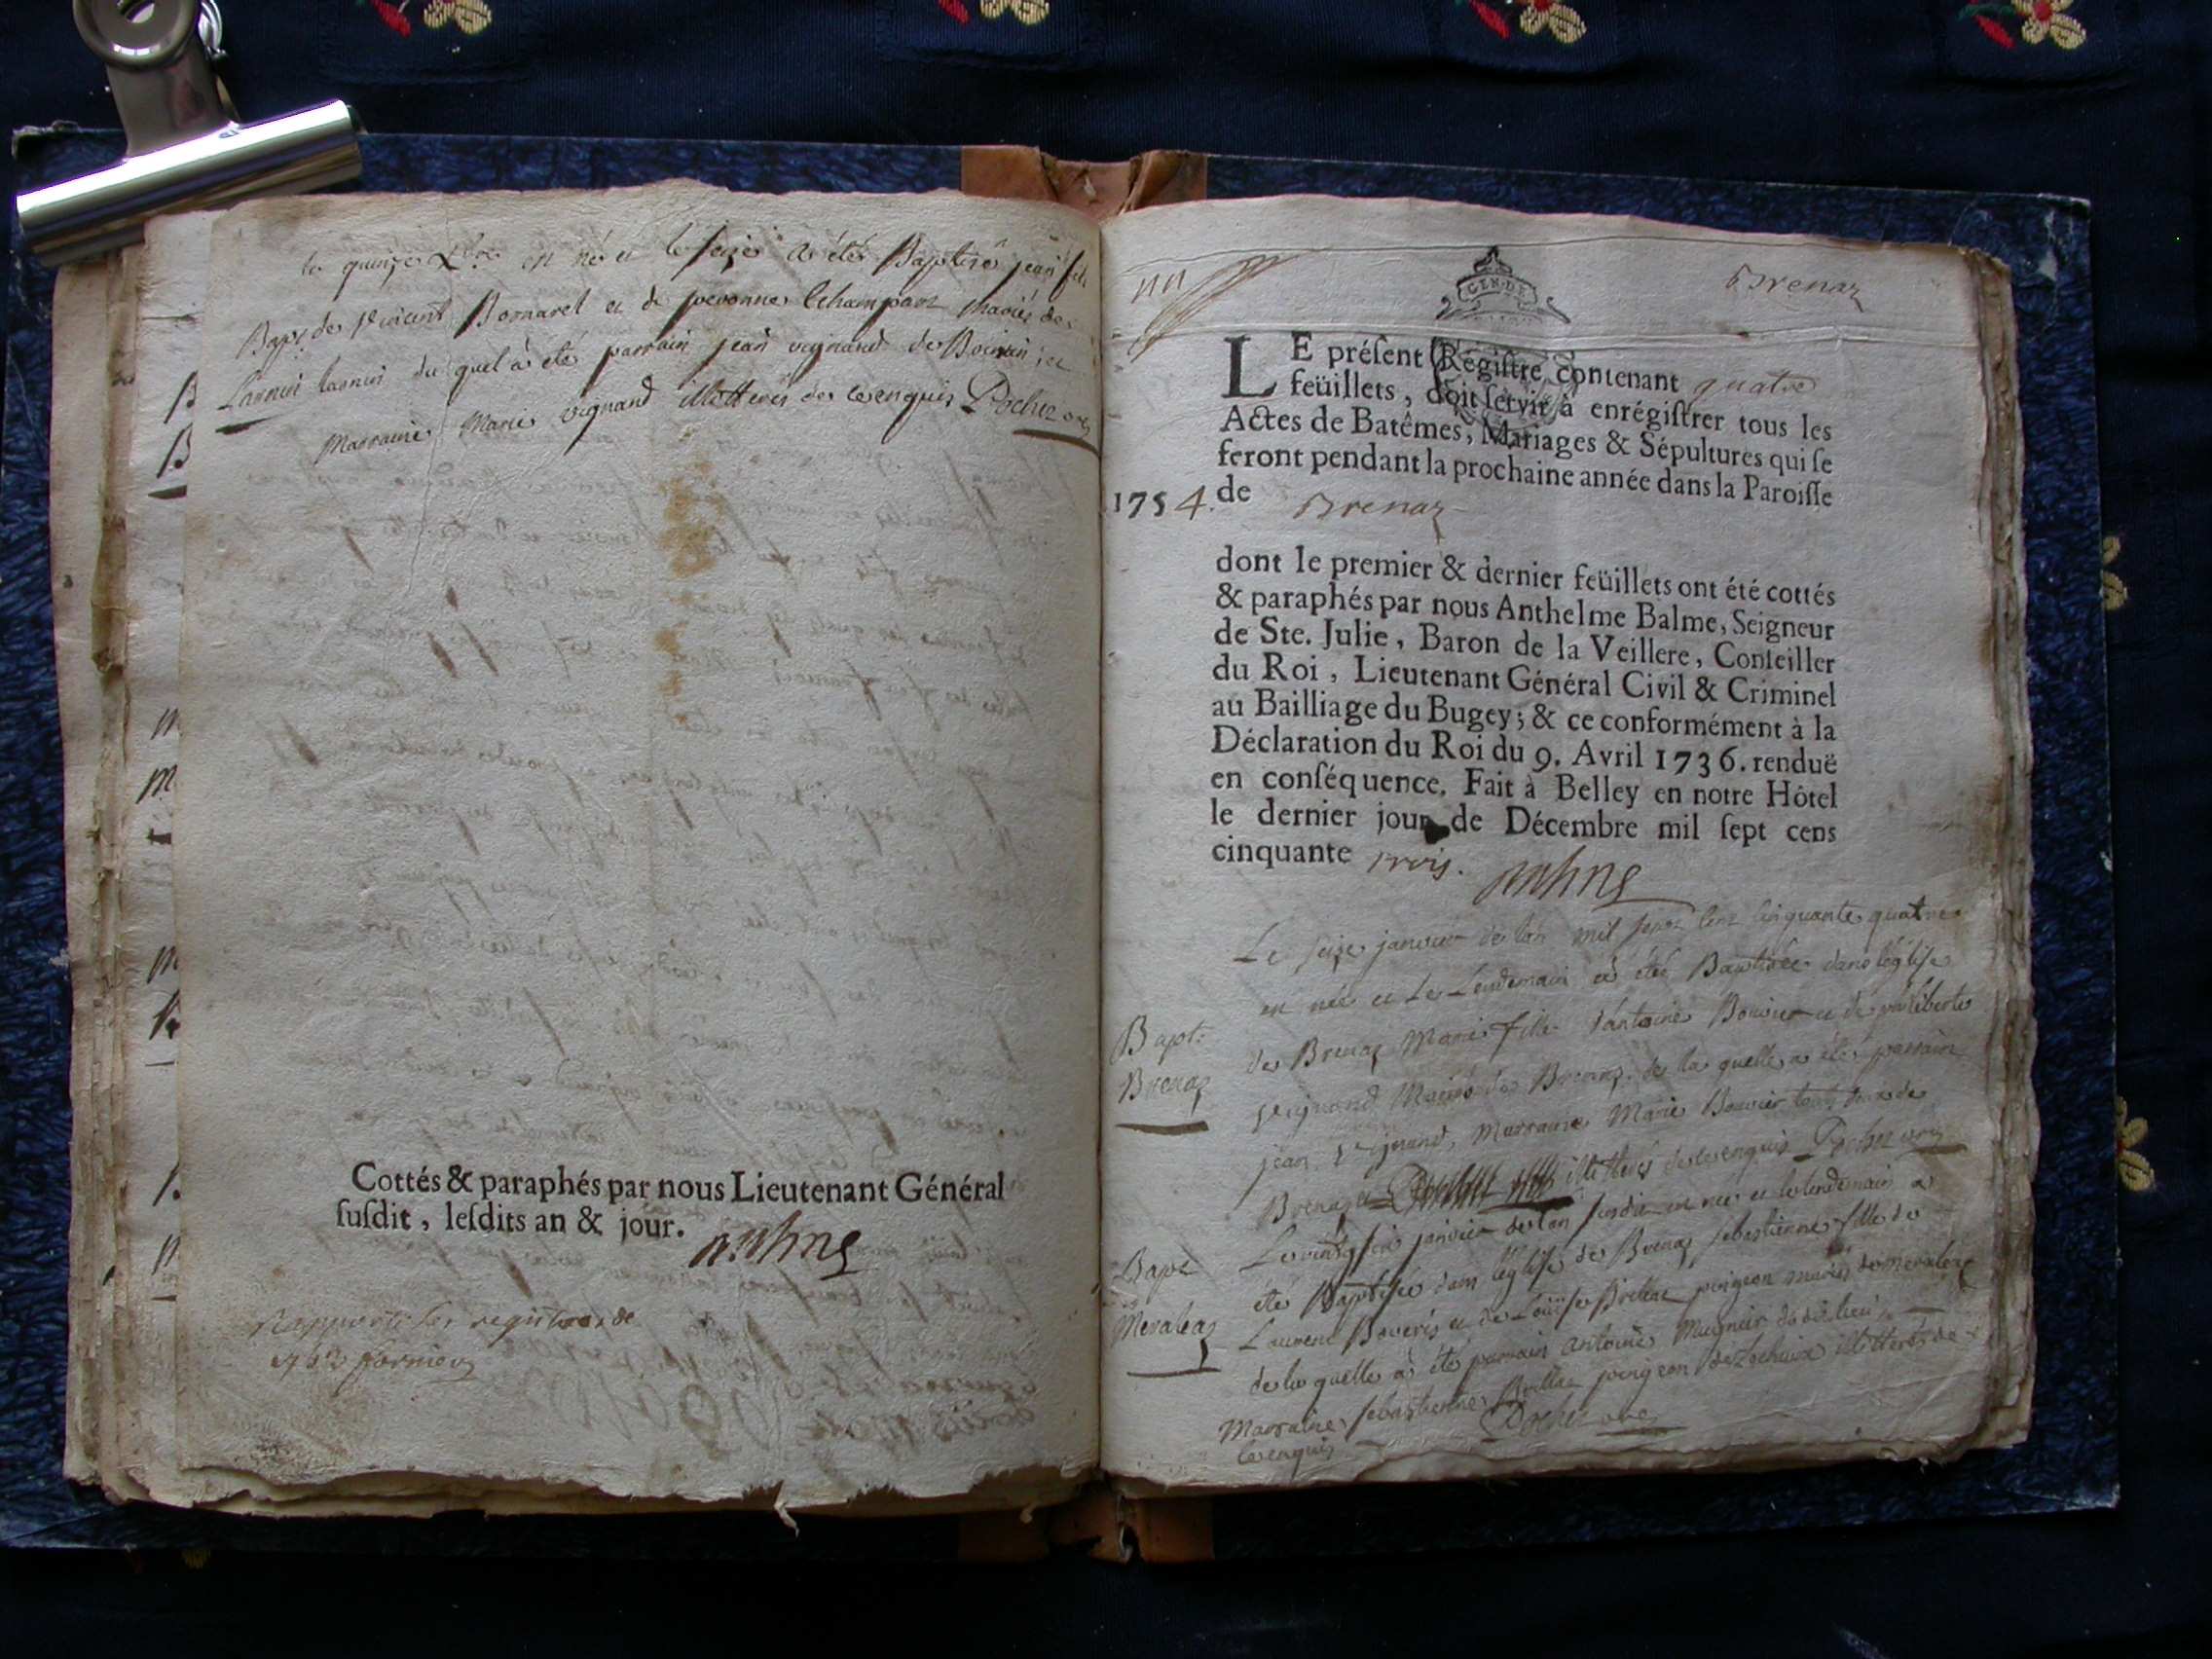 le quinze en né et le seize a été Baptisé jean fils
Bapt de vincent Bornarel et de mariés de
Larnin du quel a été parrain jean vignand de ; et
Marraine Marie vignand illitterés de ce enquis Pochet
Cottés & paraphés par nous Lieutenant Général
ſuſdit, leſdits an & jour.
Rapporté les registres de
Brenaz
GEN. DE
LE préſent Régiſtre contenant quatre
feüillets, doit ſervir à enrégiſtrer tous les
Actes de Batêmes, Mariages & Sépultures qui ſe
feront pendant la prochaine année dans la Paroiſſe
1754. de Brenaz
dont le premier & dernier feüillets ont été cottés
& paraphés par nous Anthelme Balme, Seigneur
de Ste. Julie, Baron de la Veillere, Conſeiller
du Roi, Lieutenant Général Civil & Criminel
au Bailliage du Bugey; & ce conformément à la
Déclaration du Roi du 9. Avril 1736. renduë
en conſéquence. Fait à Belley en notre Hôtel
le dernier jour de Décembre mil ſept cens
cinquante trois.
Le seize janvier de l'an mil sept cent cinquante quatre
en née et le Lendemain a été Baptisée dans léglise
Bapt: de Brenaz Marie fille d'antoine Bouvier et de philiberte
Brenaz vignand Mariés de Brenaz. de la quelle a été parrain
jean vignand, Marraine Marie Bouvier touts deux de
Brenaz illitterés de ce enquis Pochet
Le vingt six janvier de l'an susdit en née et le lendemain a
Bapt été Baptisée dans léglise de Brenaz sebastienne fille de
Meraleaz Laurent et de Loüise pongeon mariés de meraleaz
de la quelle a été parrain antoine Mugnier du dit lieu
Marraine sebastienne pongeon illitterés de
ce enquis Pochet